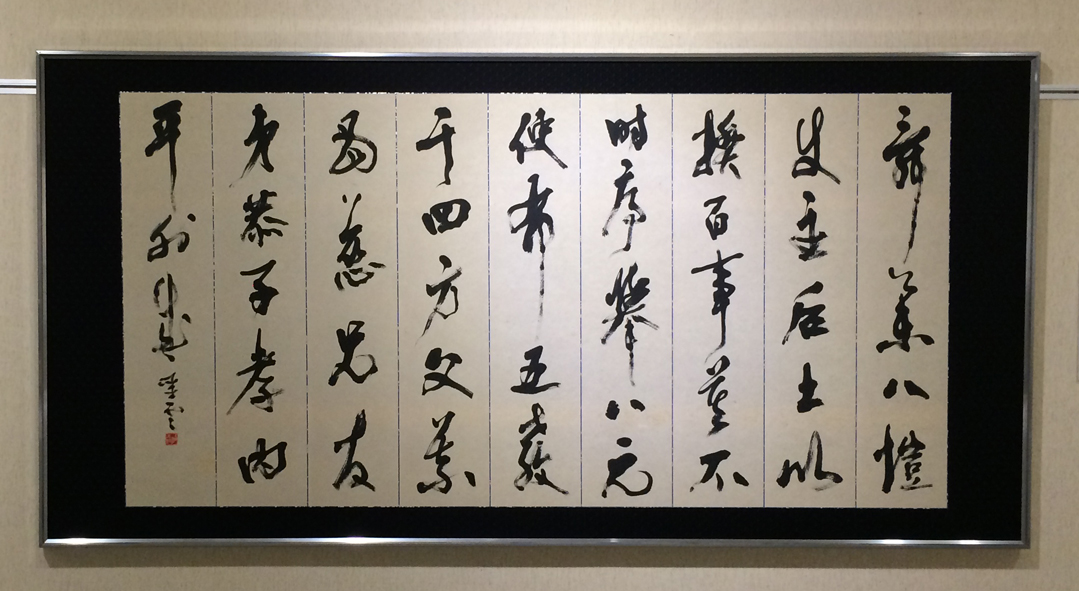 舜舉八愷
使主后土以
揆百事莫不
時序舉八元
使布五教
于四方父義
母慈兄友
弟恭子孝内
平外成